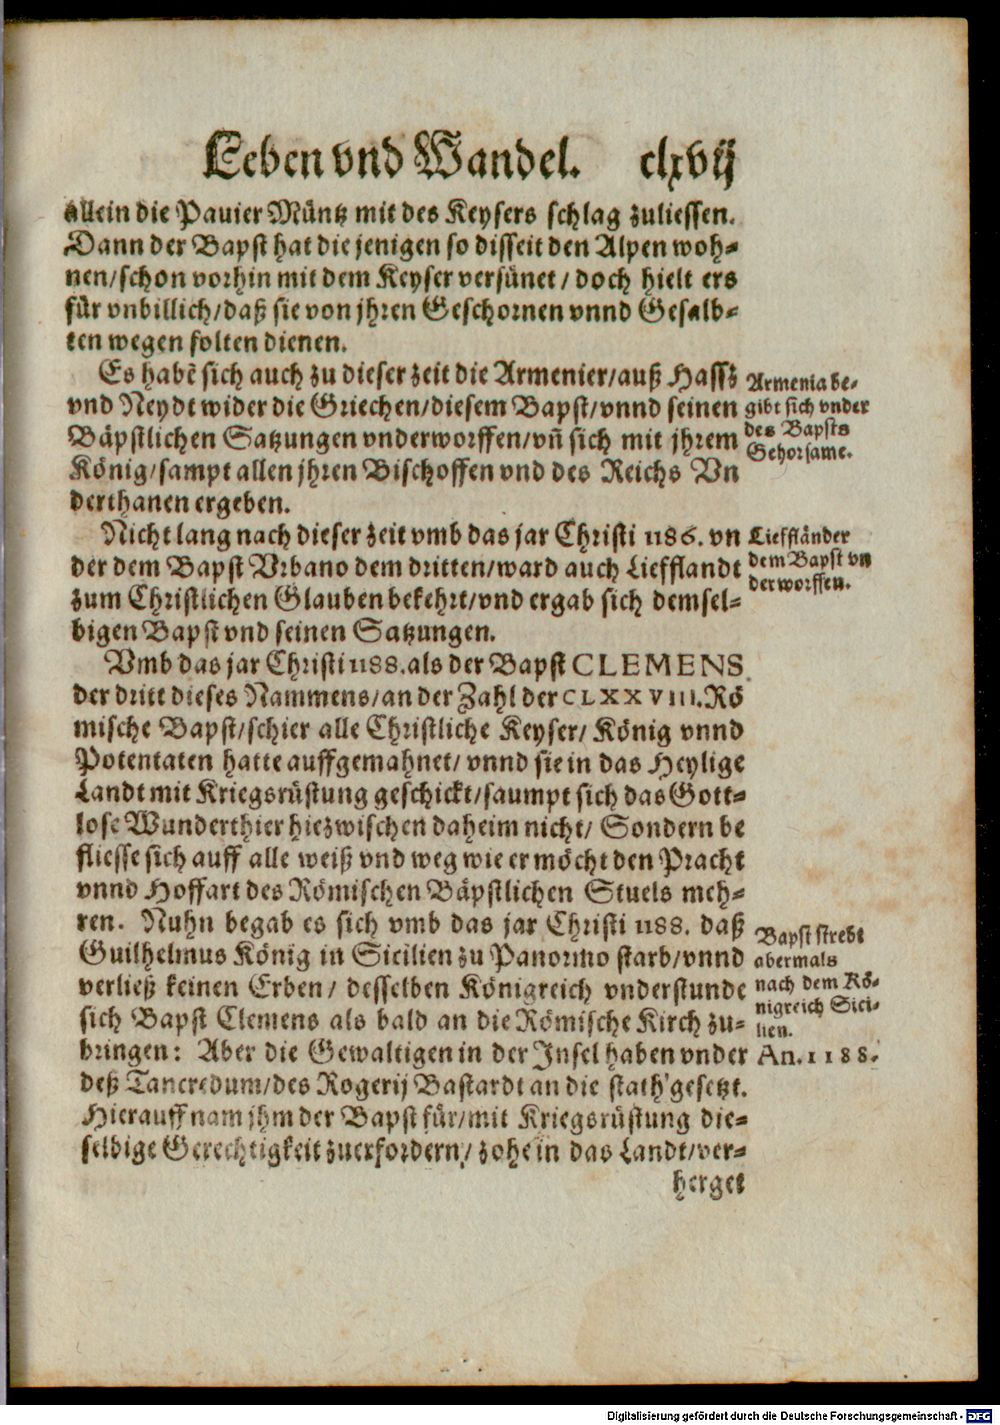 Leben vnd Wandel. clxvij
allein die Pauier Müntz mit des Keysers schlag zuliessen.
Dann der Bapst hat die jenigen so disseit den Alpen woh-
nen/schon vorhin mit dem Keyser versünet/ doch hielt ers
für vnbillich/daß sie von jhren Geschornen vnnd Gesalb-
ten wegen solten dienen.
Es habē sich auch zu dieser zeit die Armenier/auß Hassz
vnd Neydt wider die Griechen/diesem Bapst/vnnd seinen
Bäpstlichen Satzungen vnderworffen/vñ sich mit jhrem
König/sampt allen jhren Bischoffen vnd des Reichs Vn
derthanen ergeben.
Armenia be-
gibt sich vnder
des Bapsts
Gehorsame.
Nicht lang nach dieser zeit vmb das jar Christi 1186. vn
der dem Bapst Vrbano dem dritten/ward auch Liefflandt
zum Christlichen Glauben bekehrt/vnd ergab sich demsel-
bigen Bapst vnd seinen Satzungen.
Liefflånder
dem Bapst vn
derworffen.
Vmb das jar Christi 1188.als der Bapst CLEMENS
der dritt dieses Nammens/an der Zahl der CLXXVIII.Rö
mische Bapst/schier alle Christliche Keyser/ König vnnd
Potentaten hatte auffgemahnet/ vnnd sie in das Heylige
Landt mit Kriegsrüstung geschickt/saumpt sich das Gott-
lose Wunderthier hiezwischen daheim nicht/ Sondern be
fliesse sich auff alle weiß vnd weg wie er möcht den Pracht
vnnd Hoffart des Römischen Bäpstlichen Stuels meh-
ren. Nuhn begab es sich vmb das jar Christi 1188. daß
Guilhelmus König in Sicilien zu Panormo starb/vnnd
verließ keinen Erben/ desselben Königreich vnderstunde
sich Bapst Clemens als bald an die Römische Kirch zu-
bringen: Aber die Gewaltigen in der Insel haben vnder
deß Tancredum/des Rogerij Bastardt an die stath gesetzt.
Hierauff nam jhm der Bapst für/mit Kriegsrüstung die-
selbige Gerechtigkeit zuerfordern/ zohe in das Landt/ver-
herget
Bapst strebt
abermals
nach dem Kö-
nigreich Sici-
lien.
An.1188.
Digitalisierung gefördert durch die Deutsche Forschungsgemeinschaft - DFG